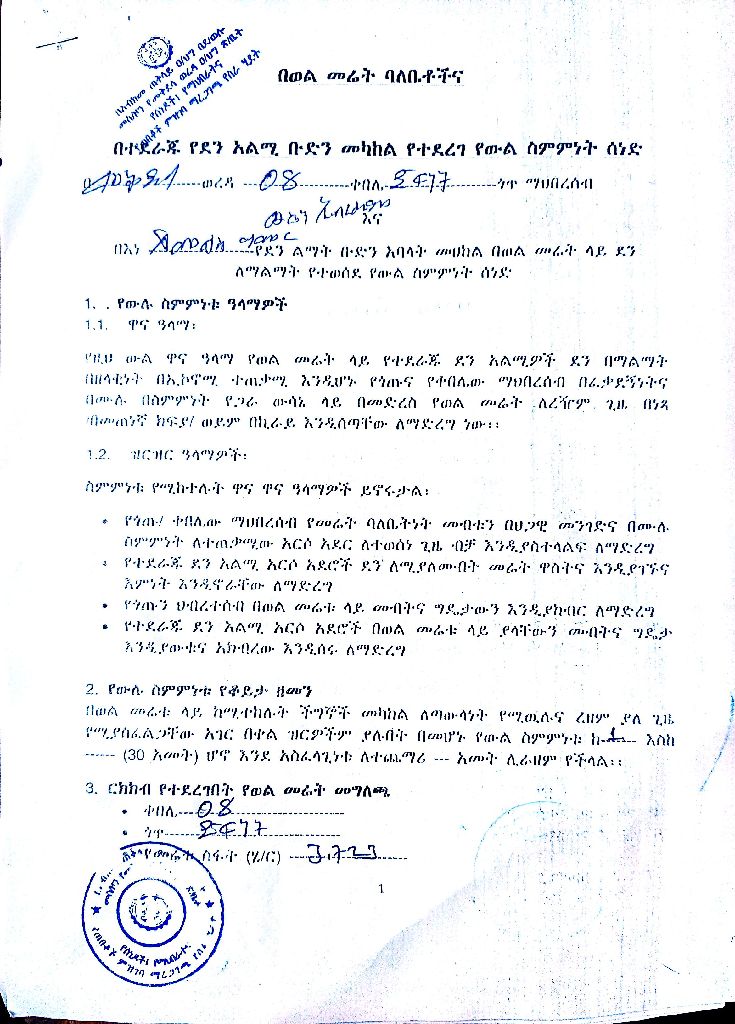 በወል መሬት ባለቤቶችና
በተደራጁ የደን አልሚ ቡድን መካከል የተደረገ የውል ስምምነት ሰነድ
ወረዳ 08 ቀበሌ ጎጥ ማህበረሰብ
እና
በእነ የደን ልማት ቡድን አባላት መሀከል በወል መሬት ላይ ደን
ለማልማት የተወሰደ የውል ስምምነት ሰነድ
1. . የውሉ ስምምነቱ ዓላማዎች
1.1. ዋና ዓላማ፡
የዚህ ውል ዋና ዓላማ የወል መሬት ላይ የተደራጁ ደን አልሚዎች ደን በማልማት
በዘላቂነት በኢኮኖሚ ተጠቃሚ እንዲሆኑ የጎጡና የቀበሌው ማህበረሰብ በፈቃደኝነትና
በሙሉ በስምምነት የጋራ ውሳኔ ላይ በመድረስ የወል መሬት ለረዥም ጊዜ በነጻ
/በመጠነኛ ክፍያ/ ወይም በኪራይ እንዲሰጣቸው ለማድረግ ነው፡፡
1.2. ዝርዝር ዓላማዎች፡
ስምምነቱ የሚከተሉት ዋና ዋና ዓላማዎች ይኖሩታል፡
• የጎጡ/ ቀበሌው ማህበረሰብ የመሬት ባለቤትነት መብቱን በህጋዊ መንገድና በሙሉ
ስምምነት ለተጠቃሚው አርሶ አደር ለተወሰነ ጊዜ ብቻ እንዲያስተላልፍ ለማድረግ
• የተደራጁ ደን አልሚ አርሶ አደሮች ደን ለሚያለሙበት መሬት ዋስትና እንዲያገኙና
እምነት እንዲኖራቸው ለማድረግ
• የጎጡን ህብረተሰብ በወል መሬቱ ላይ መብትና ግዴታውን እንዲያከብር ለማድረግ
• የተደራጁ ደን አልሚ አርሶ አደሮች በወል መሬቱ ላይ ያላቸውን መብትና ግዴታ
እንዲያውቁና አክብረው እንዲሰሩ ለማድረግ
2. የውሉ ስምምነቱ የቆይታ ዘመን
በወል መሬቱ ላይ ከሚተከሉት ችግኞች መካከል ለጣውላነት የሚዉሉና ረዘም ያለ ጊዜ
የሚያስፈልጋቸው አገር በቀል ዝርዎችም ያሉበት በመሆኑ የውል ስምምነቱ ከ-1--- እስከ
------ (30 አመት) ሆኖ እንደ አስፈላጊነቱ ለተጨማሪ --- አመት ሊራዘም የችላል፡፡
3. ርክክብ የተደረገበት የወል መሬት መግለጫ
• ቀበሌ 08
• ጎጥ
• የመሬቱ ስፋት (ሄ/ር)
1